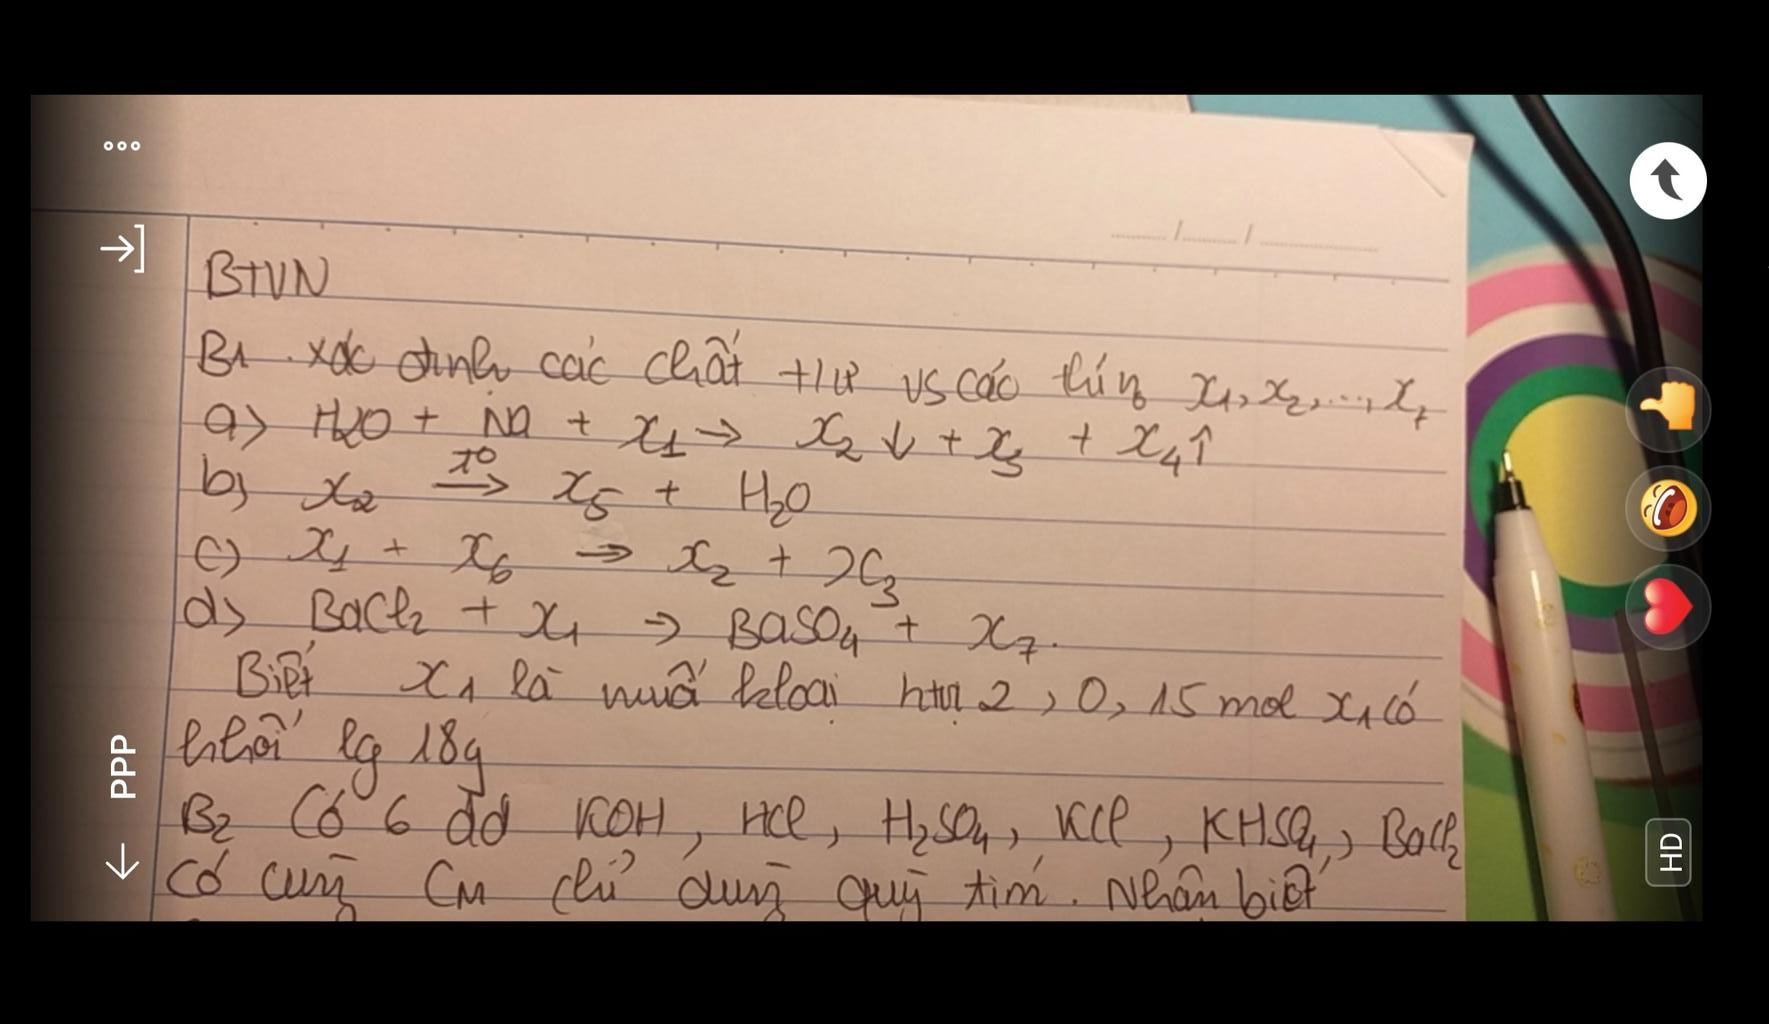 BTVN
B1 . xác định các chất +/ư vs các túng x1, x2, ..., x7
a) H2O + Na + x1 → x2 ↓ + x3 + x4↑
b) x2 t° → x5 + H2O
c) x1 + x6 → x2 + x3
d) BaCl2 + x1 → BaSO4 + x7.
Biết x1 là muối kloại htrị 2, 0,15 mol x1 có
khối lg 18g
B2 Có 6 dd KOH, HCl, H2SO4, KCl, KHSO4, BaCl2
có cùng CM chỉ dùng quỳ tím. Nhận biết
PPP
HD